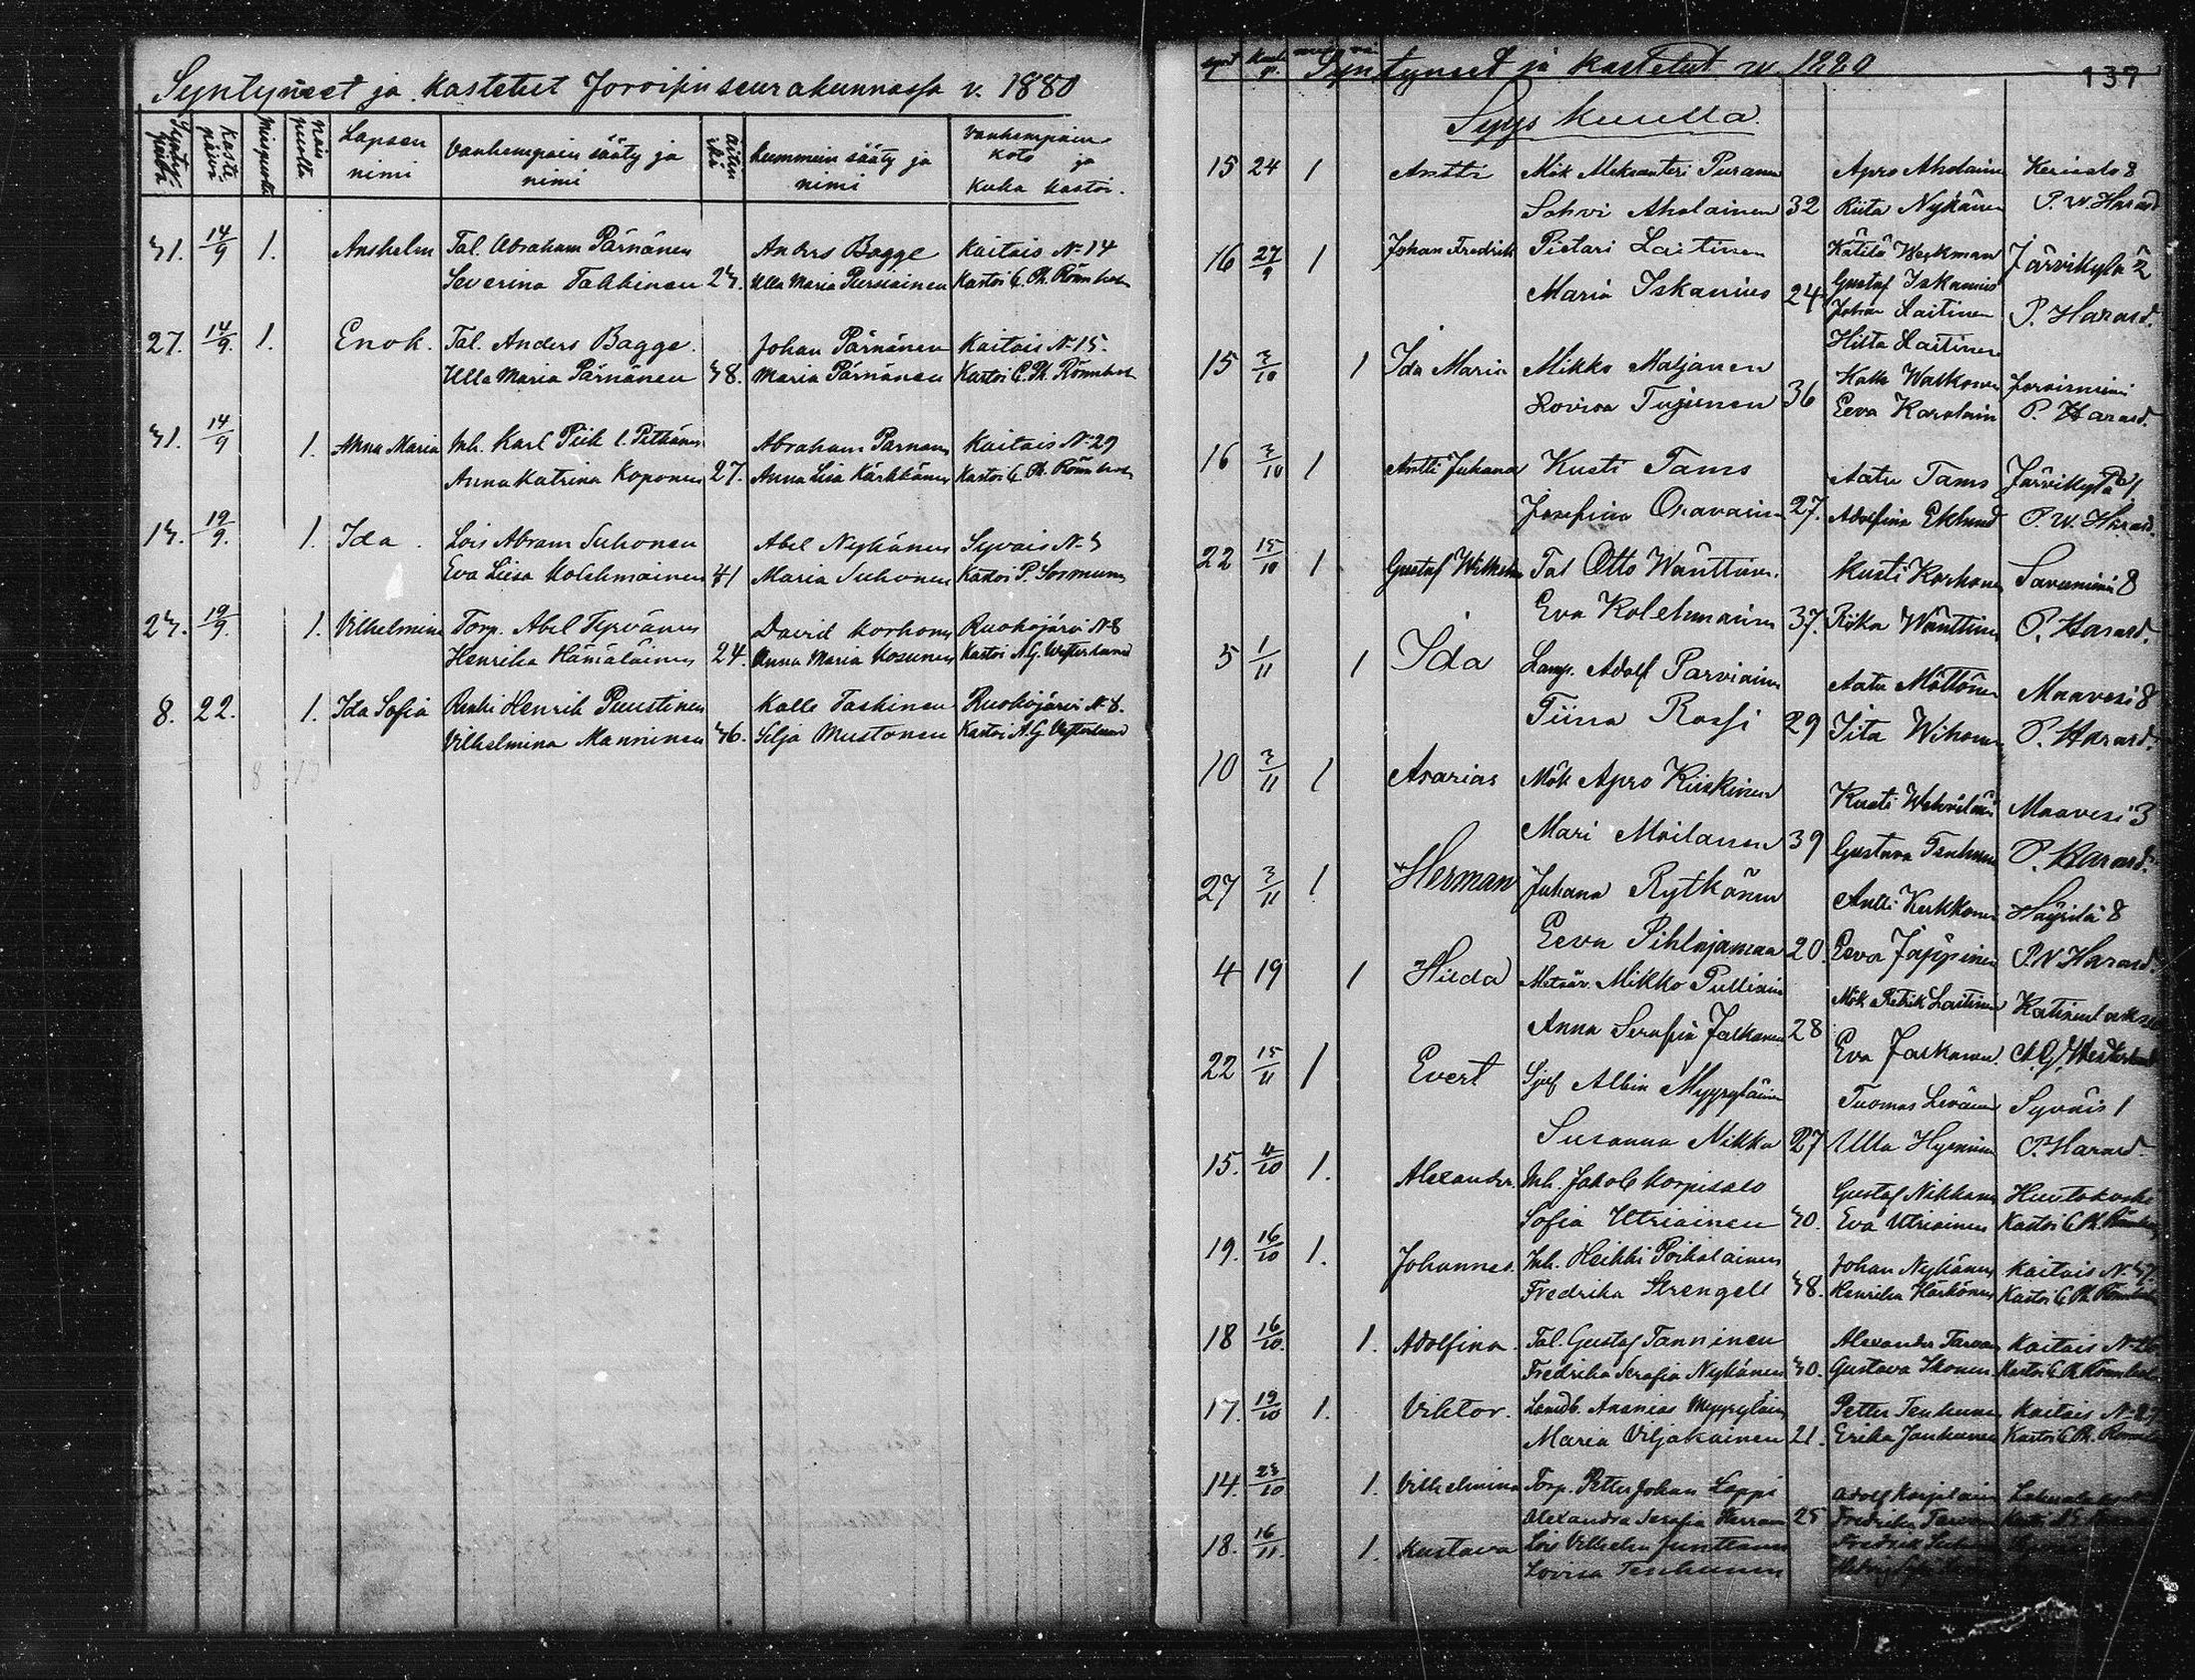 Syntyneet ja kastetut Joroisin seurakunnassa v. 1880
Synty- päivä Kaste päivä Miespuolta Naispuolta Lapsen nimi Vanhempain sääty ja nimi Äitin ikä Kummein sääty ja nimi Vanhempain koto ja kuka kastoi.
31. 14/9 1. Anshelm Tal. Abraham Pärnänen Anders Bagge Kaitais No 14
Severina Tahkinen 23. Ulla Maria Pursiainen Kastoi C. Ph. Rönnholm
27. 14/9. 1. Enok. Tal. Anders Bagge. Johan Pärnänen Kaitais No 15.
Ulla Maria Pärnänen 38. Maria Pärnänen Kastoi C. Ph. Rönnholm
31. 14/9 1. Anna Maria Inh. Karl Piik l. Pitkänen Abraham Parnanen Kaitais No 29
Anna Katrina Koponen 27. Anna Lisa Kärkkänen Kastoi C. Ph. Rönnholm
13. 19/9. 1. Ida Lois Abram Suhonen Abel Nykänen Syvais No 3
Eva Liisa Kolehmainen 41 Maria Suhonen Kastoi P.
23. 19/9. 1. Vilhelmina Torp. Abel Tyrvänen David Korhonen Ruokojärvi No 8
Henrika Hämäläinen 24. Anna Maria Kosunen Kastoi A.G. Westerlund
8. 22. 1. Ida Sofia Renki Henrik Puustinen Kalle Taskinen Ruokojärvi No 8.
Vilhelmina Manninen 36. Silja Mustonen Kastoi A.G. Westerlund
Syntyneet ja kastetut w. 1880 137
Syys kuulla
15 24 1 Antti Mök Aleksanteri Puranen Apro Aholainen Kerisalo 8
Sohvi Aholainen 32 Riita Nykänen P. W. Harard
16 27/9 1 Johan Fredrik Pietari Laitinen Kätilö Weckman Järvikylä 2
Maria Iskanius 24 Gustaf Iskanius
Johan Laitinen P. Harard.
Hilta Laitinen
15 3/10 1 Ida Maria Mikko Maljanen Kalle Walkonen Joroisniemi
Lovisa Tujunen 36 Eeva Karolain P. Harard.
16 3/10 1 Antti Juhana Kusti Tams Aatu Tams Järvikylä 1
Josefina Oravainen 27. Adolfina Eklund P. W. Harard.
22 15/10 1 Gustaf Wilhelm Tal Otto Wänttinen Kusti Korhonen Savuniemi 8
Eva Kolehmainen 37. Riika Wänttinen P. Harard.
5 1/11 1 Ida Lamp. Adolf Parviainen Aatu Möttönen Maavesi 8
Tiina Rossi 29 Iita Wihonen P. Harard.
10 3/11 1 Asarias Mök Apro Kiiskinen Kusti Wehviläi Maavesi 3
Mari Moilanen 39 Gustava Tenhunen P. Harard.
27 3/11 1 Herman Juhana Rytkönen Antti Kukkonen Häyrilä 8
Eeva Pihlajamaa 20. Eeva Jäppinen P.W. Harard.
4 19 1 Hilda Metsäv. Mikko Pulliain Mök Retrik Laitinen Katisenlaks
Anna Serafia Jalkanen 28 Eva Jalkanen A.G. Westerlund
22 15/11 1 Evert Albin Myyryläinen Tuomas Leväinen Syväis 1
Susanna Nikka 27 Ulla Hyvnin P. Harard.
15. 4/10 1. Alexander. Inh. Jakob Korpisalo Gustaf Nikkanen Huutokoski
Sofia Utriainen 30. Eva Utriainen Kastoi C. Ph. Rönnholm
19. 16/10 1. Johannes. Inh. Heikki Poikolainen Johan Nykänen Kaitais No 37.
Fredrika Strengell 38. Henrika Härkönen Kastoi C. Ph. Rönnholm
18 16/10. 1. Adolfina. Tal. Gustaf Tanninen Alexander Kaitais No 26
Fredrika Serafia Nykänen 30. Gustava Ikonen Kastoi C. Ph. Rönnholm
17. 19/10 1. Viktor. Landb. Ananias Myyryläin Petter Tenhunen Kaitais No
Maria Viljakainen 21. Erika Janhunen Kastoi C. Ph. Rönnholm
14. 23/10 1. Vilhelmina Torp. Petter Johan Lappi Adolf
Alexandra Serafia 25 Fredrika
18. 16/11. 1. Kustava Lois Vilhelm Junttanen Fredrik
Lovisa Tenhunen